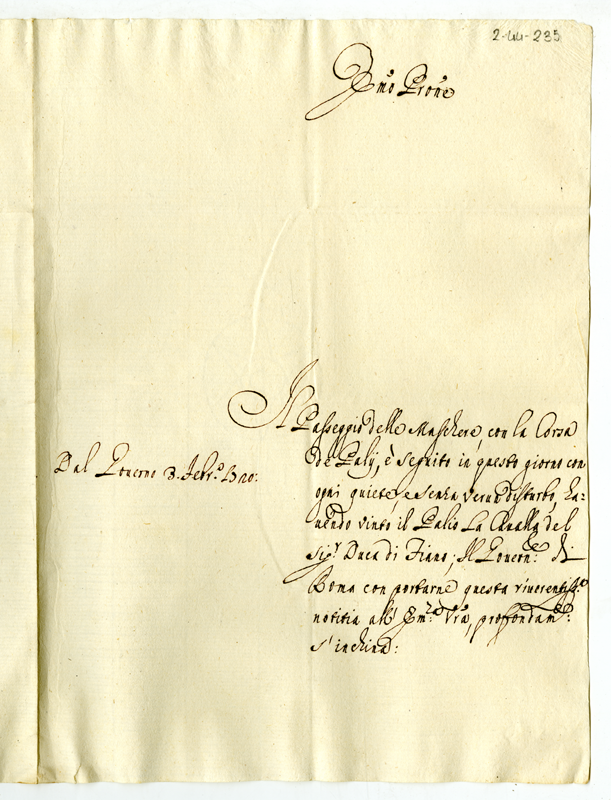 2-44-235
Em̃o Prõne
Il Passeggio delle Maschere, con la Corsa
de Palij, è seguito in questo giorno con
ogni quiete, e senza verun disturbo, ha-
uendo vinto il Palio La Caualla del
Sig.r Duca di Fiano; Il Gouern.e di
Roma con portarne questa riuerentiss.a
notitia all' Em.za Vrã, profondam.e
s' inchina:
Dal Gouerno 3. Febr.o